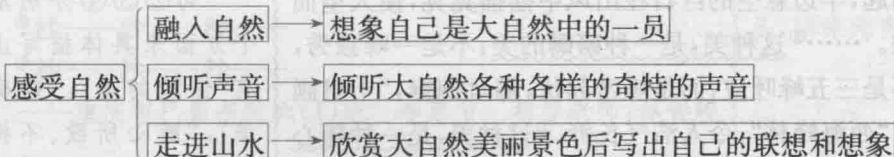 融入自然→想象自己是大自然中的一员
感受自然 倾听声音→倾听大自然各种各样的奇特的声音
走进山水→欣赏大自然美丽景色后写出自己的联想和想象